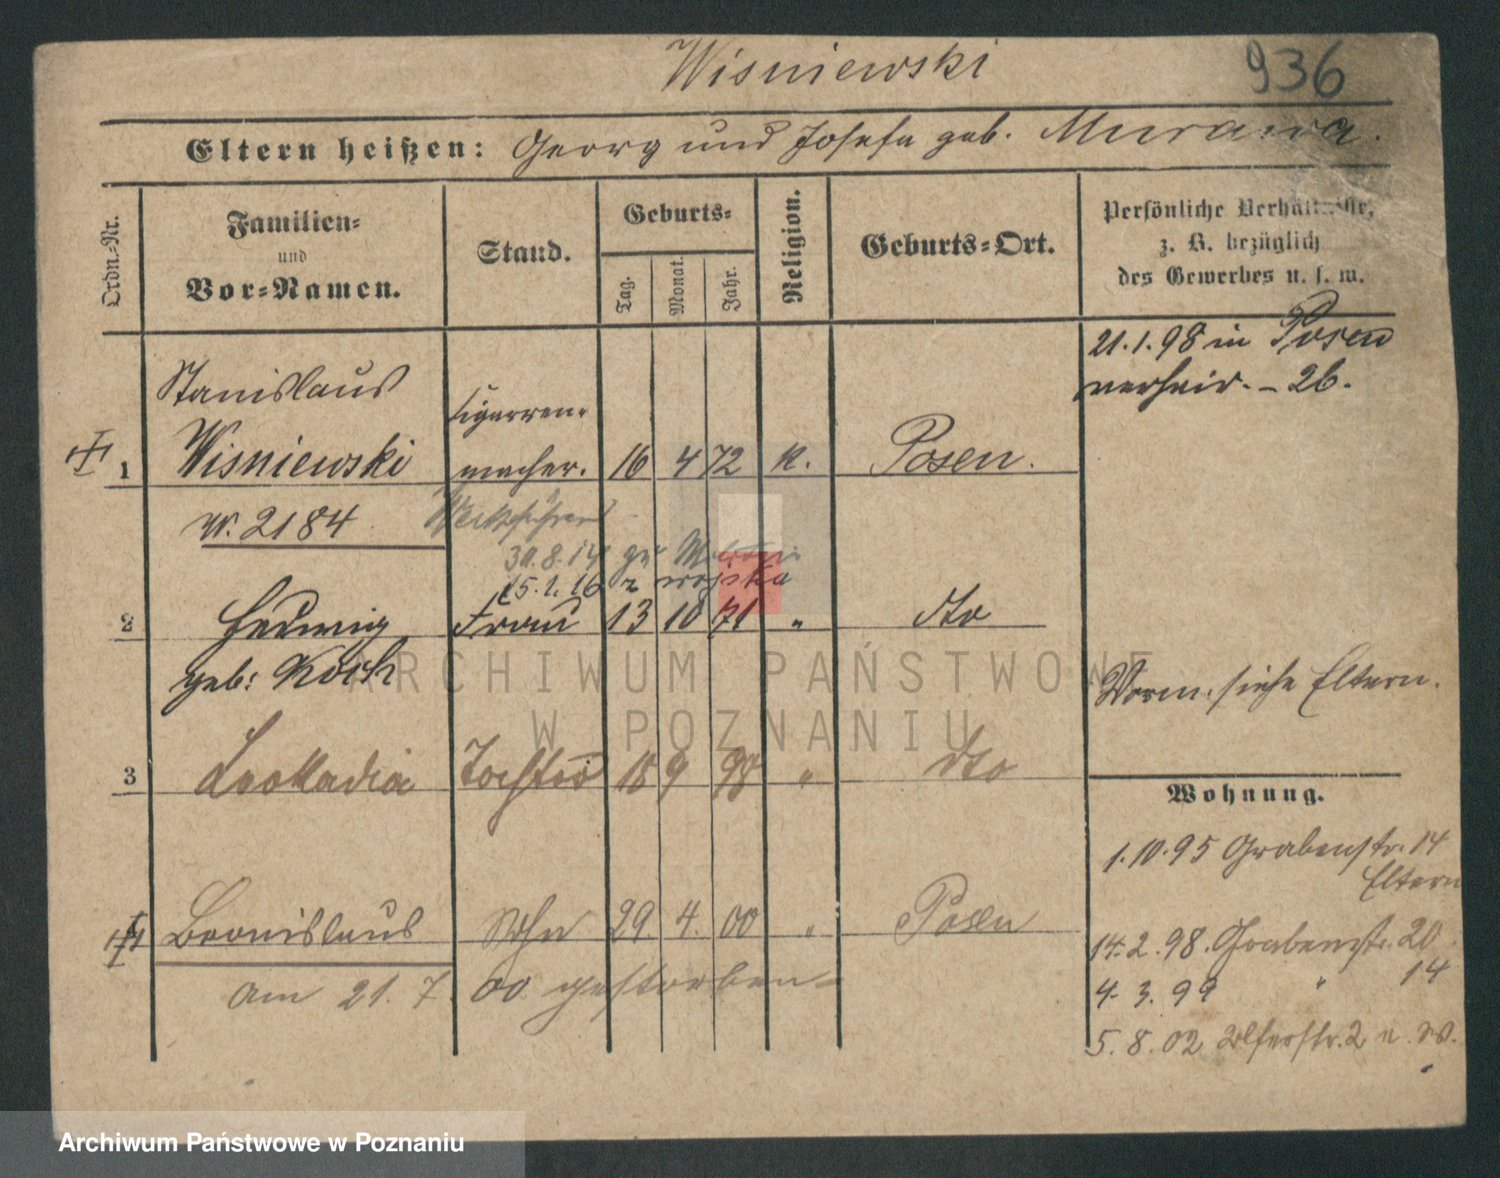 Wisniewski
936
Eltern heißen: Georg und Josefa geb. Murawa.
Ordn.-Nr.
Familien-
und
Vor-Namen.
Stand.
Geburts-
Tag.
Monat.
Jahr.
Religion.
Geburts-Ort.
Persönliche Verhältnisse,
z. B. bezüglich
des Gewerbes u. s. w.
21.1.98 in Posen
verheir. - 26.
Stanislaus
Cigarren-
1 Wisniewski macher. 16 4 72 K. Posen.
W. 2184
30.8.14
15.1.16 z wojska
2 Hedwig Frau 13 10 71 " dto
geb: Koch
Vorm. siehe Eltern.
3 Leokadia Tochter 18 9 98 " dto
Wohnung.
1.10.95 Grabenstr. 14
Eltern
Bronislaus Sohn 29. 4. 00 " Posen
14.2.98. Grabenstr. 20
am 21. 7. 00 gestorben
4. 3. 99 " 14
5. 8. 02 2 u. W.
ARCHIWUM PAŃSTWOWE
W POZNANIU
Archiwum Państwowe w Poznaniu